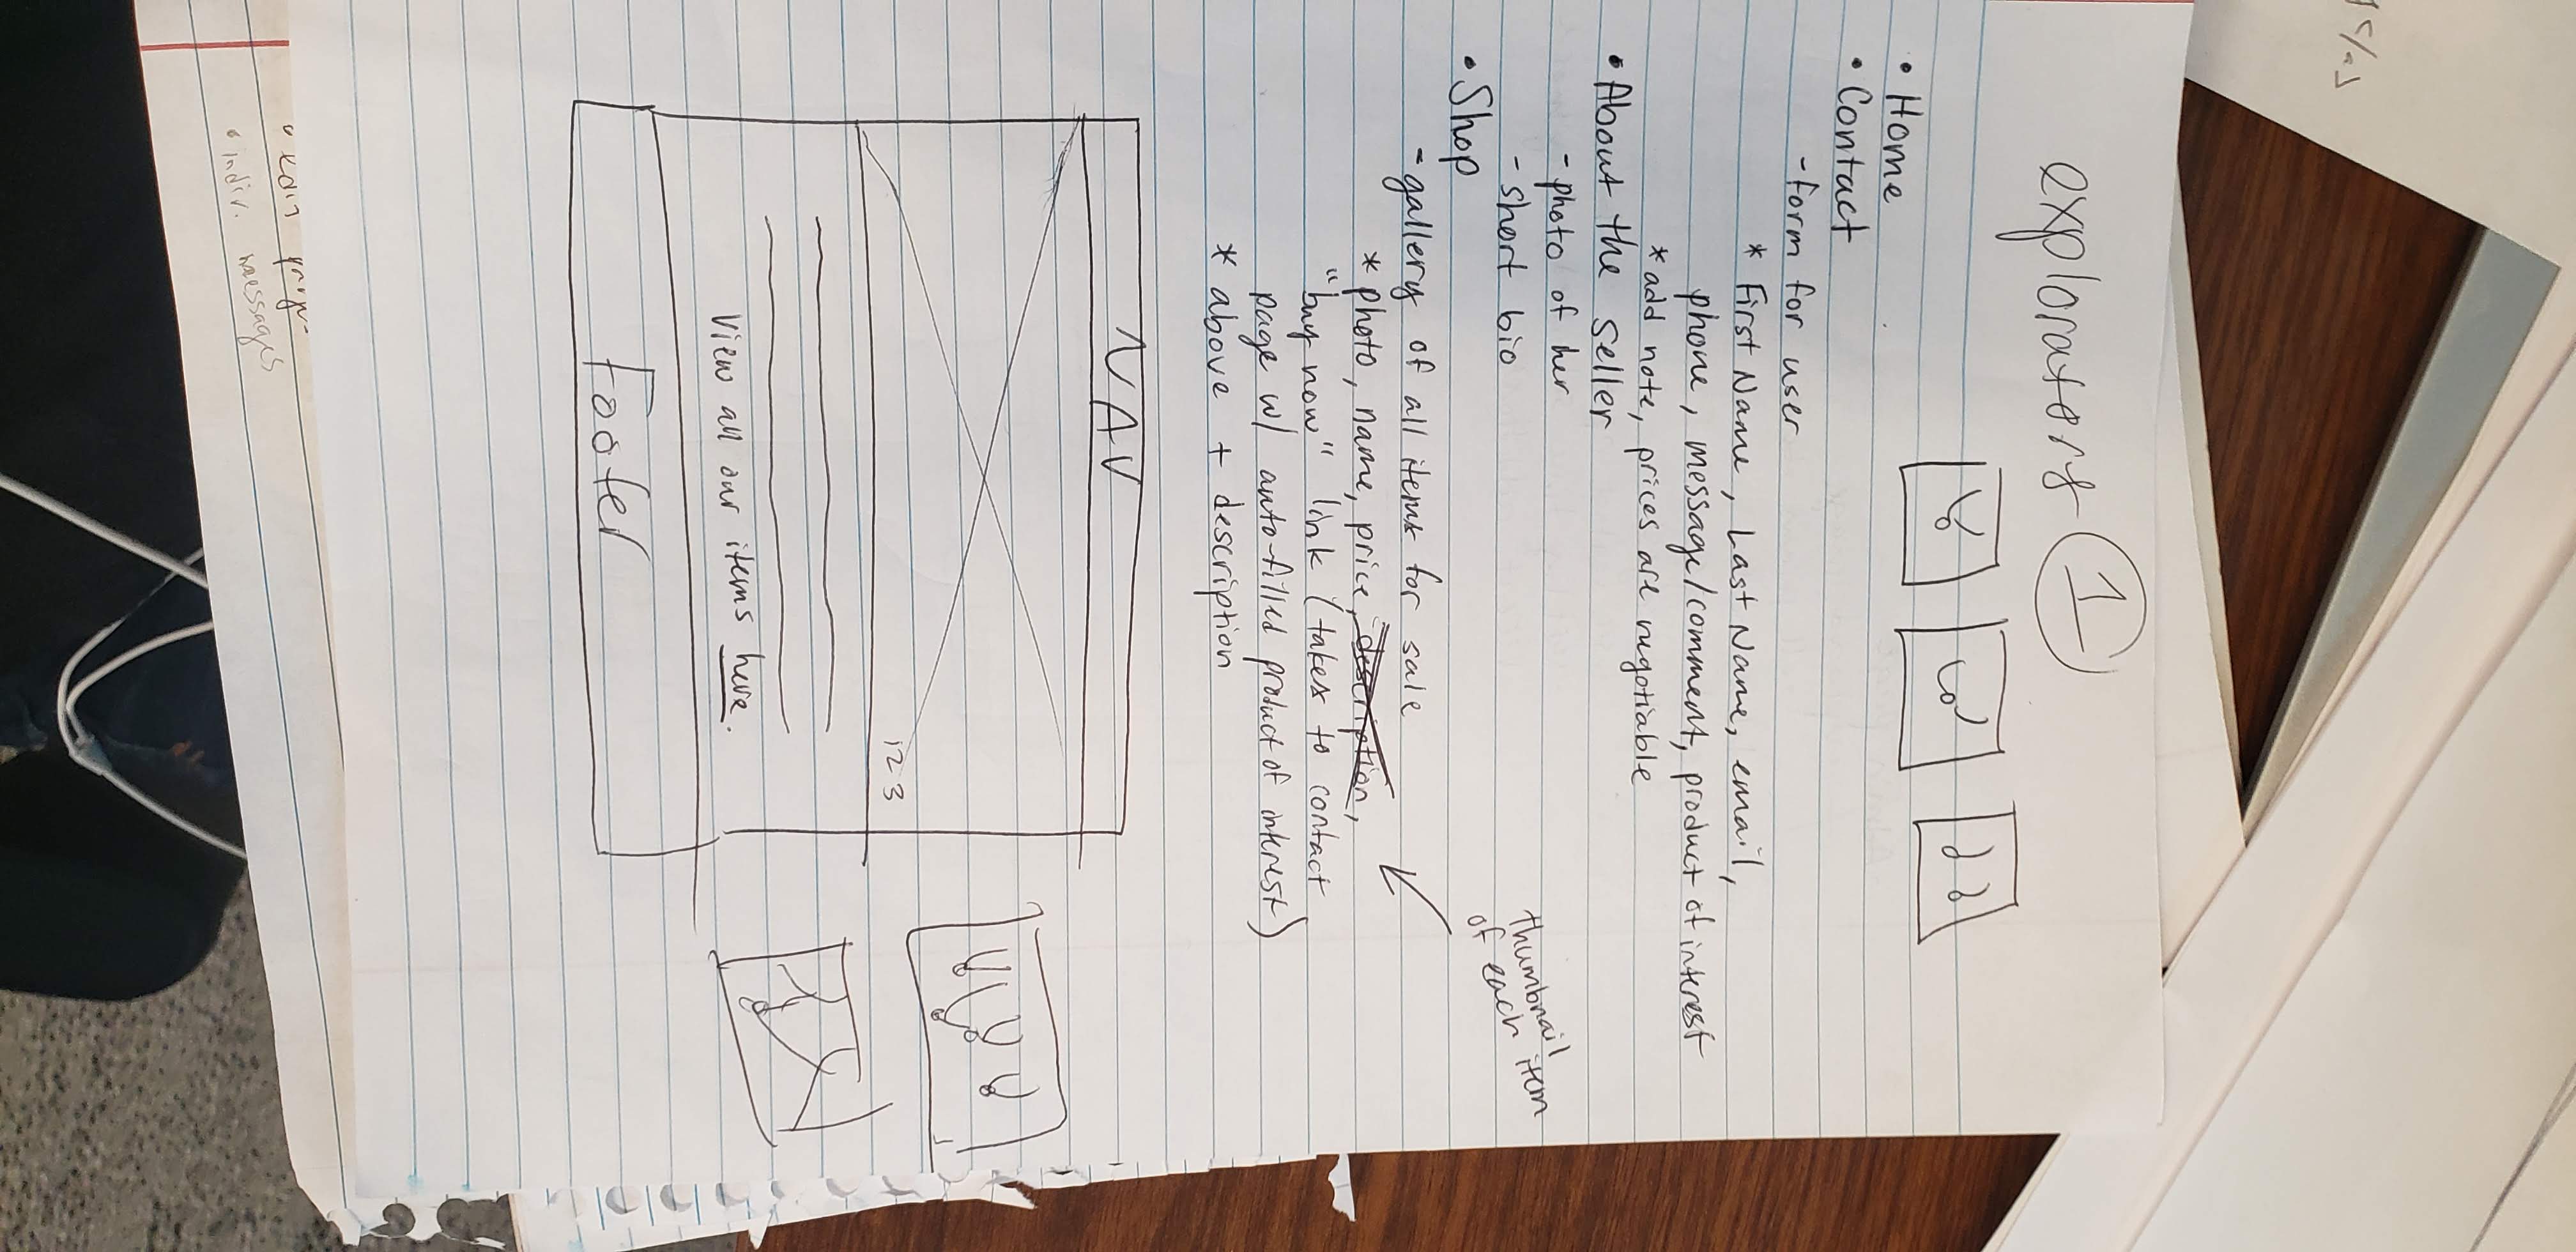 exploratory 1
• Home
• Contact
- form for user
* First Name, Last Name, email,
phone, message/comment, product of interest
* add note, prices are negotiable
• About the seller
- photo of her
- short bio
thumbnail
of each item
• Shop
- gallery of all items for sale
* photo, name, price, description,
"buy now" link (takes to contact
page w/ auto-filled product of interest)
* above + description
NAV
123
View all our items here.
Footer
• edit
• indiv. messages